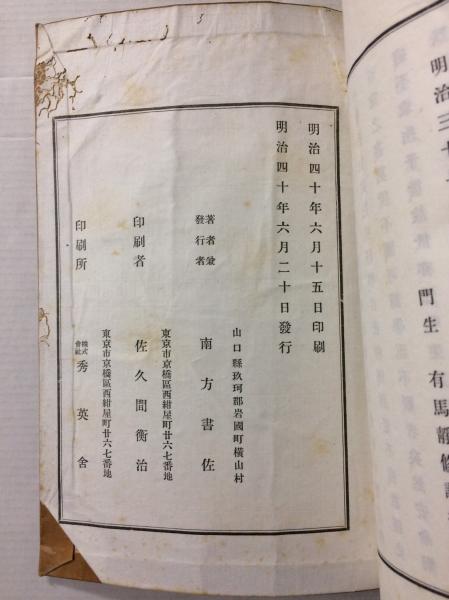 明治三十
門生 有馬靜修
明治四十年六月十五日印刷
明治四十年六月二十日發行
山口縣玖珂郡岩國町橫山村
著者兼
發行者
南方書佐
東京市京橋區西紺屋町廿六七番地
印刷者
佐久間衡治
東京市京橋區西紺屋町廿六七番地
印刷所
株式
會社
秀英舍